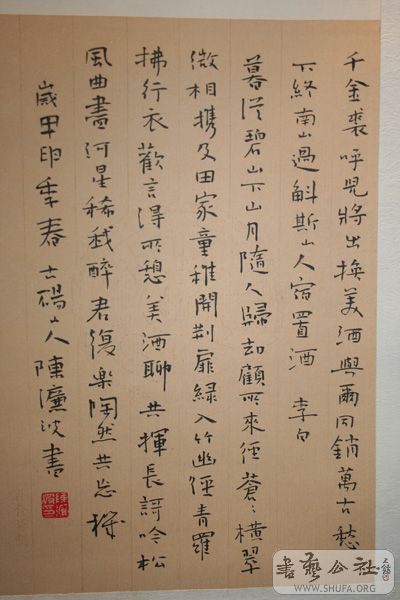 千金裘呼兒將出換美酒與爾同銷萬古愁
下終南山過斛斯山人宿置酒 李白
暮從碧山下山月隨人歸却顧所來徑蒼〻橫翠
微相攜及田家童稚開荆扉綠入竹幽徑青羅
拂行衣歡言得所憩美酒聊共揮長謌吟松
風曲盡河星稀我醉君復樂陶然共忘機
歲甲申季春古碭山人陳濂波書
書藝公社
WWW.SHUFA.ORG